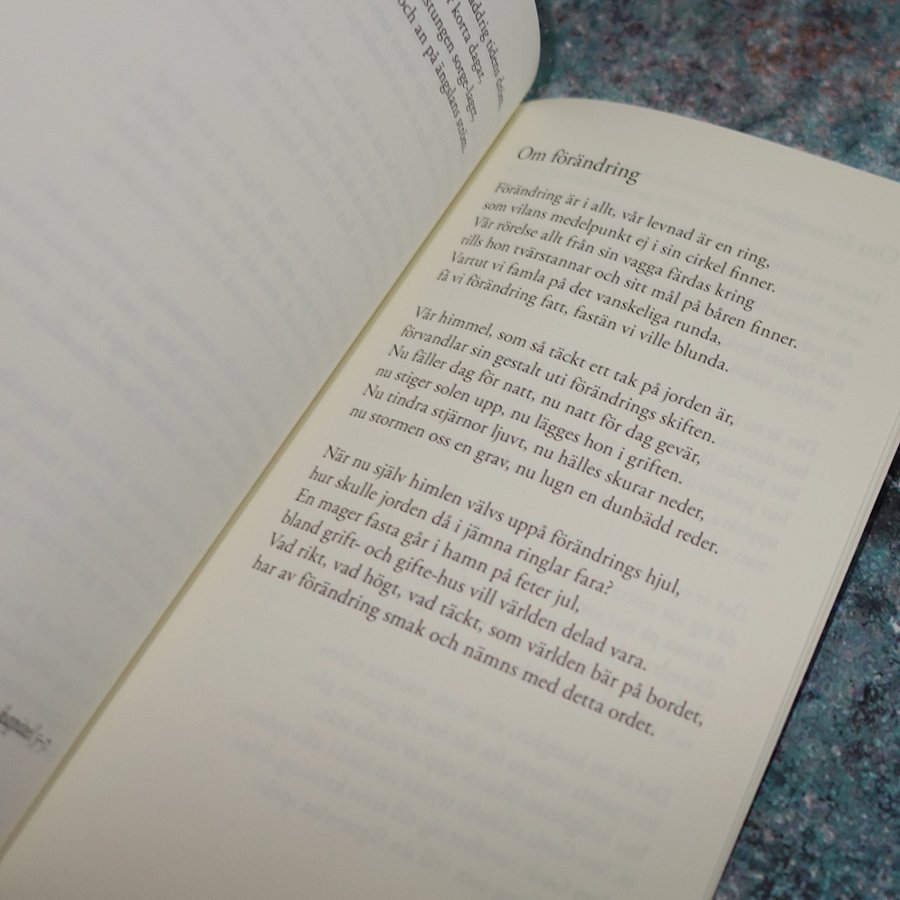 tidens
korta dagar,
sorge-lager,
och an på ängslans ström.
Om förändring
Förändring är i allt, vår levnad är en ring,
som vilans medelpunkt ej i sin cirkel finner.
Vår rörelse allt från sin vagga färdas kring
tills hon tvärstannar och sitt mål på båren finner.
Vartut vi famla på det vanskeliga runda,
få vi förändring fatt, fastän vi ville blunda.
Vår himmel, som så täckt ett tak på jorden är,
förvandlar sin gestalt uti förändrings skiften.
Nu fäller dag för natt, nu natt för dag gevär,
nu stiger solen upp, nu lägges hon i griften.
Nu tindra stjärnor ljuvt, nu hälles skurar neder,
nu stormen oss en grav, nu lugn en dunbädd reder.
När nu själv himlen välvs uppå förändrings hjul,
hur skulle jorden då i jämna ringlar fara?
En mager fasta går i hamn på feter jul,
bland grift- och gifte-hus vill världen delad vara.
Vad rikt, vad högt, vad täckt, som världen bär på bordet,
har av förändring smak och nämns med detta ordet.